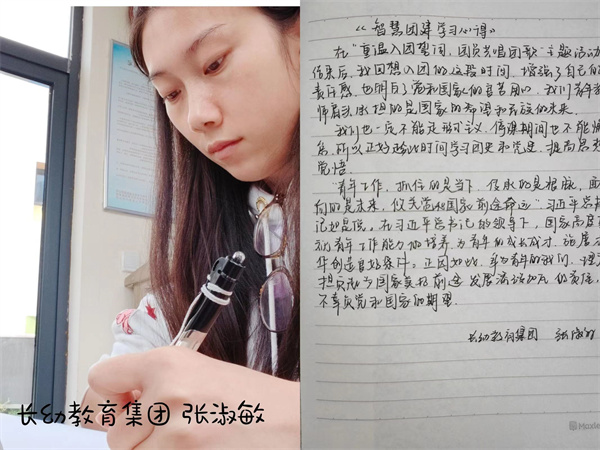 长幼教育集团 张淑敏
《智慧团建学习心得》
在“重温入团誓词，团员共唱团歌”主题活动
结束后，我回想入团的这段时间，增强了自己的
责任感，也明白了党和国家的
师肩头
的是国家的希望和民族的未来。
我们也一定不能走形式主义，
期间也不能
所以正好趁此时间学习团史和党史，提高思想
觉悟。
“青年工作，抓住的是当下，传承的是根脉，面
向的是未来，攸关党和国家前途命运”习近平总书
记如是说。在习近平总书记的领导下，国家高度
青年工作能力的培养，为青年的成长成才、施展才
华创造良好条件。正因如此，
为青年的我们，理
担负
国家
前途、发展
的责任，
不辜负党和国家的期望。
长幼教育集团 张淑敏